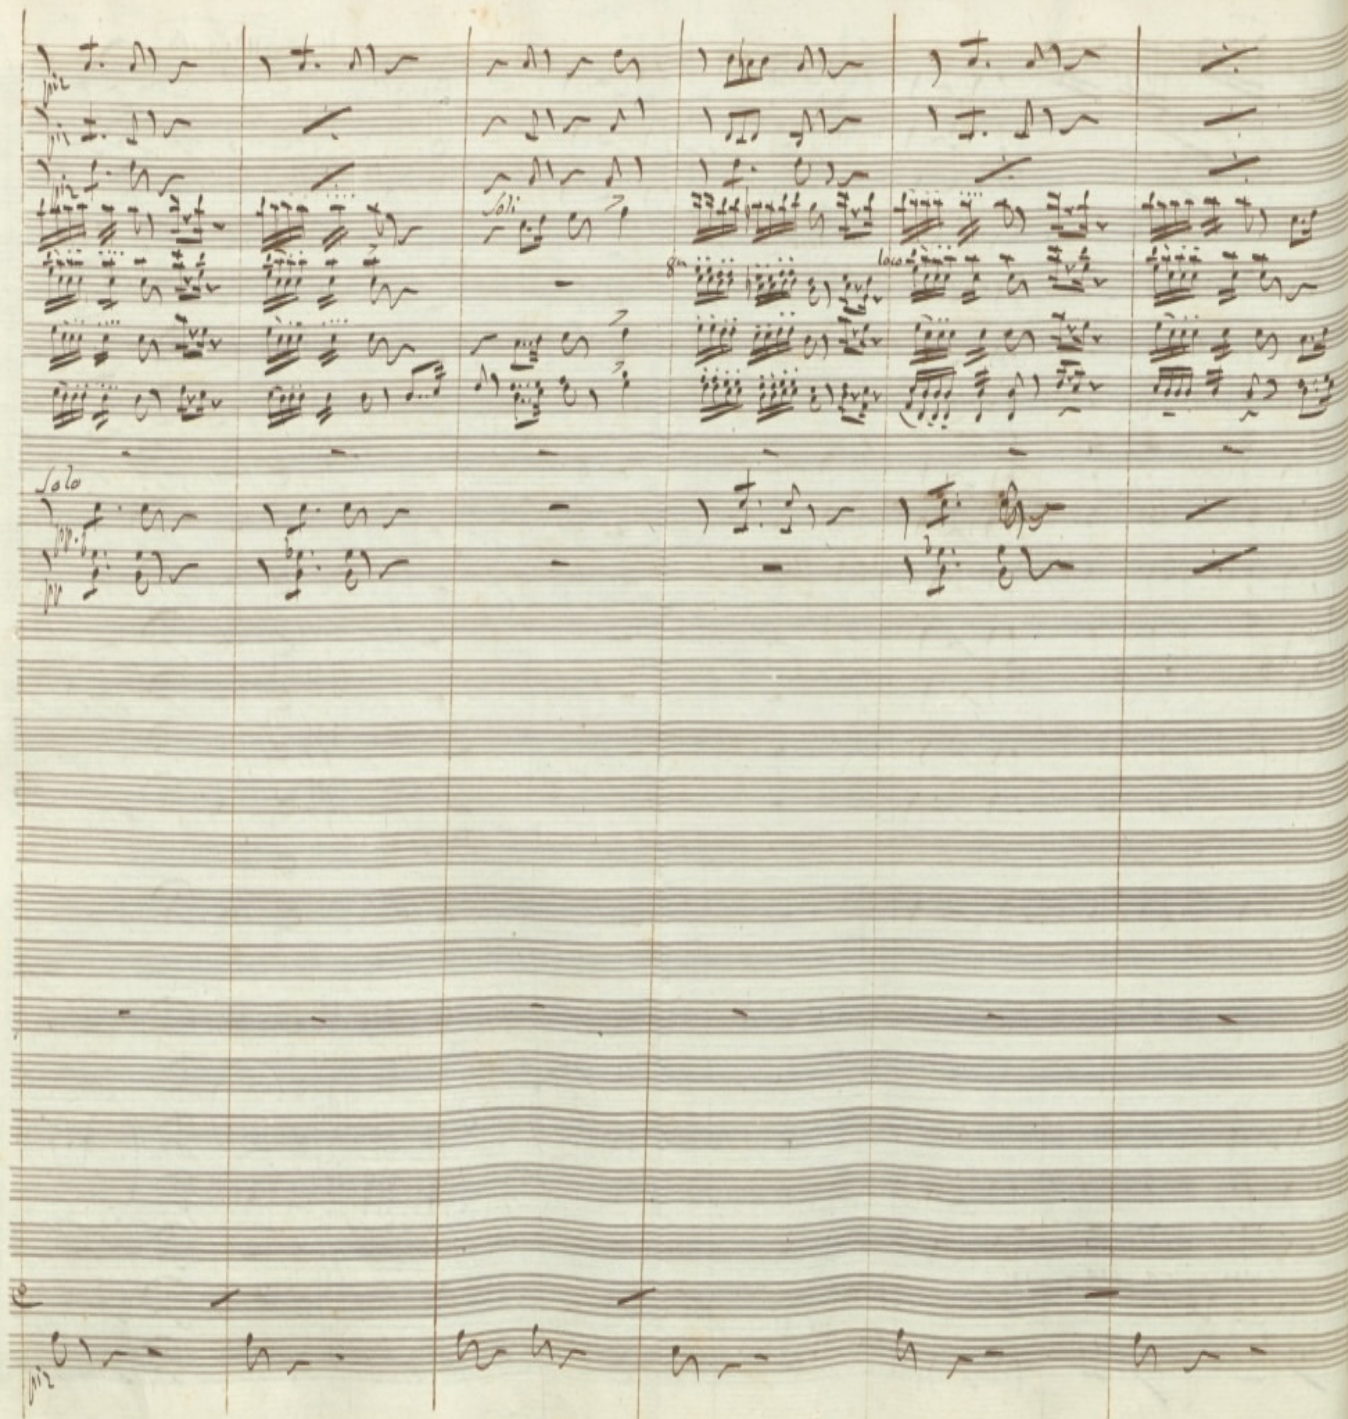 piz
piz
piz
Soli
8va loco
Solo
pp.
pp
piz